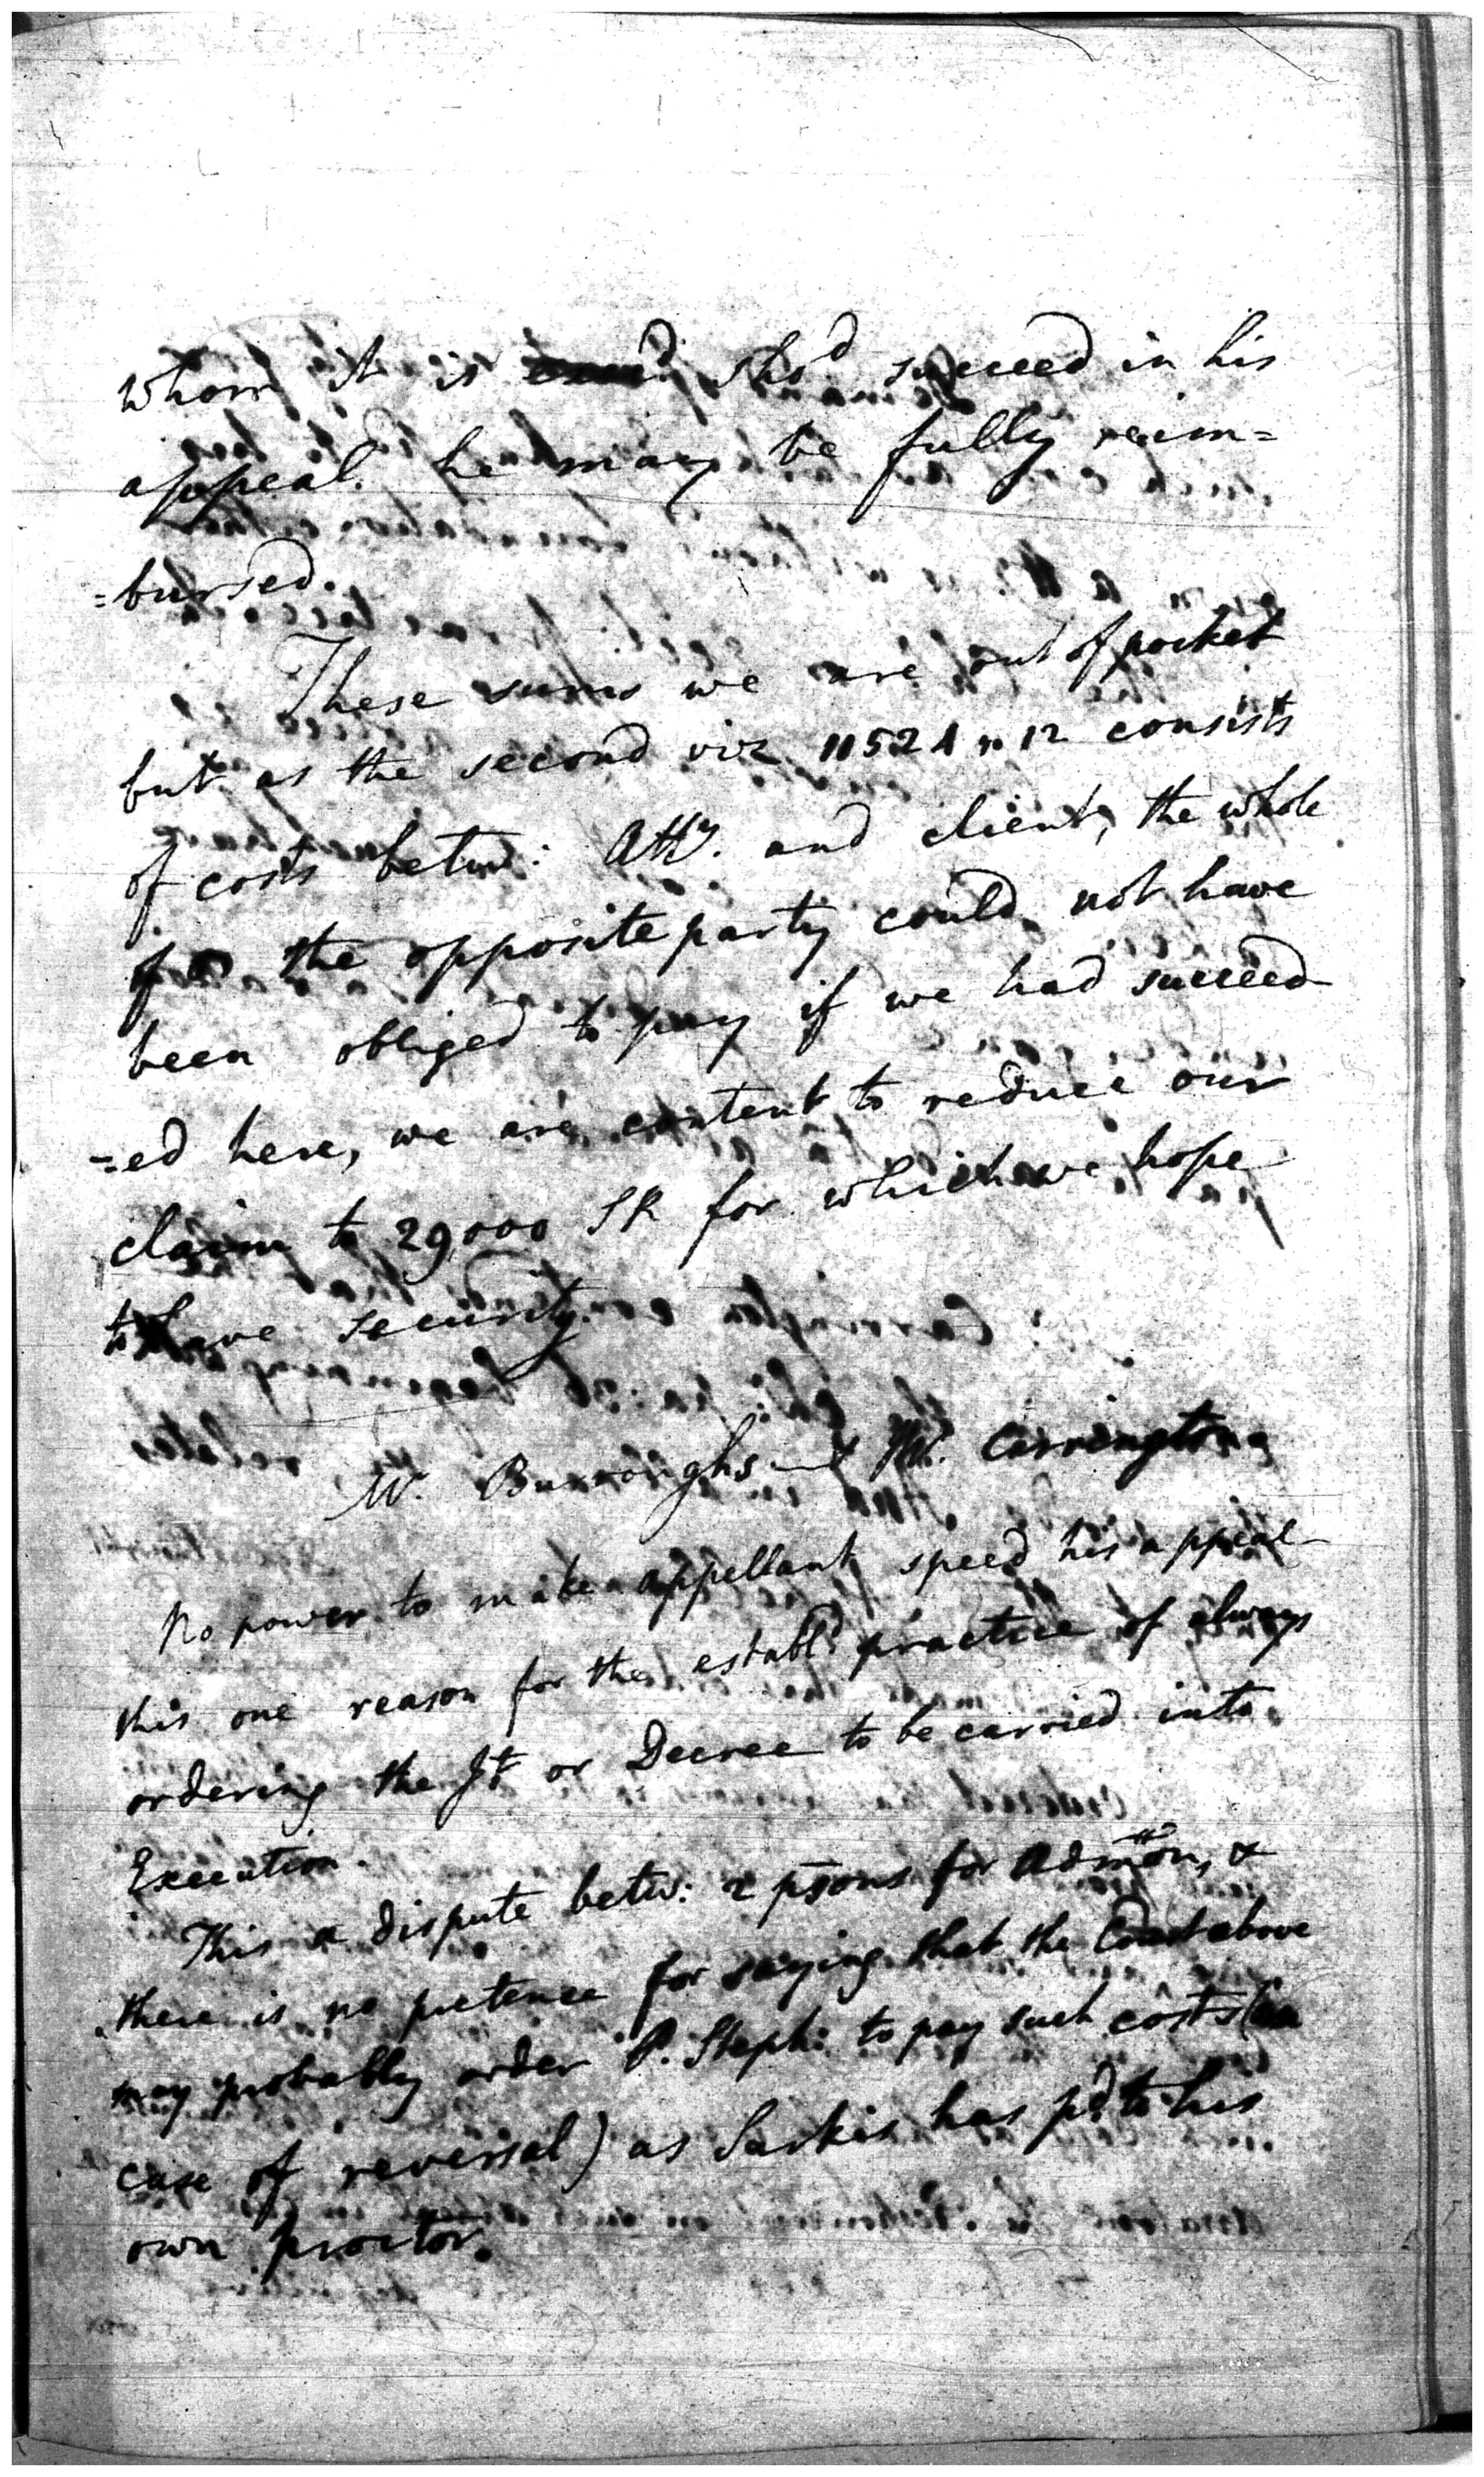 whom it is shod succeed in his
appeal. he may be fully reim=
=bursed.
These sums we are out of pocket
but as the second viz 11521 " 12 consists
of costs betw: Atty. and client, the whole
of the opposite party could not have
been obliged to pay if we had succeed
=ed here, we are content to reduce our
claim to 29,000 SR for which we hope
to have security.
Mr. Burroughs & Mr. Carrington
No power to make appellant speed his appeal
this one reason for the establd practice of always
ordering the Jt or Decree to be carried into
Execution.
This a dispute betw: 2 psons for Admton, &
there is no pretence for saying that the Court above
may probably order P. Steph: to pay such costs (in
case of reversal) as Sarkis has pd to his
own proctor.